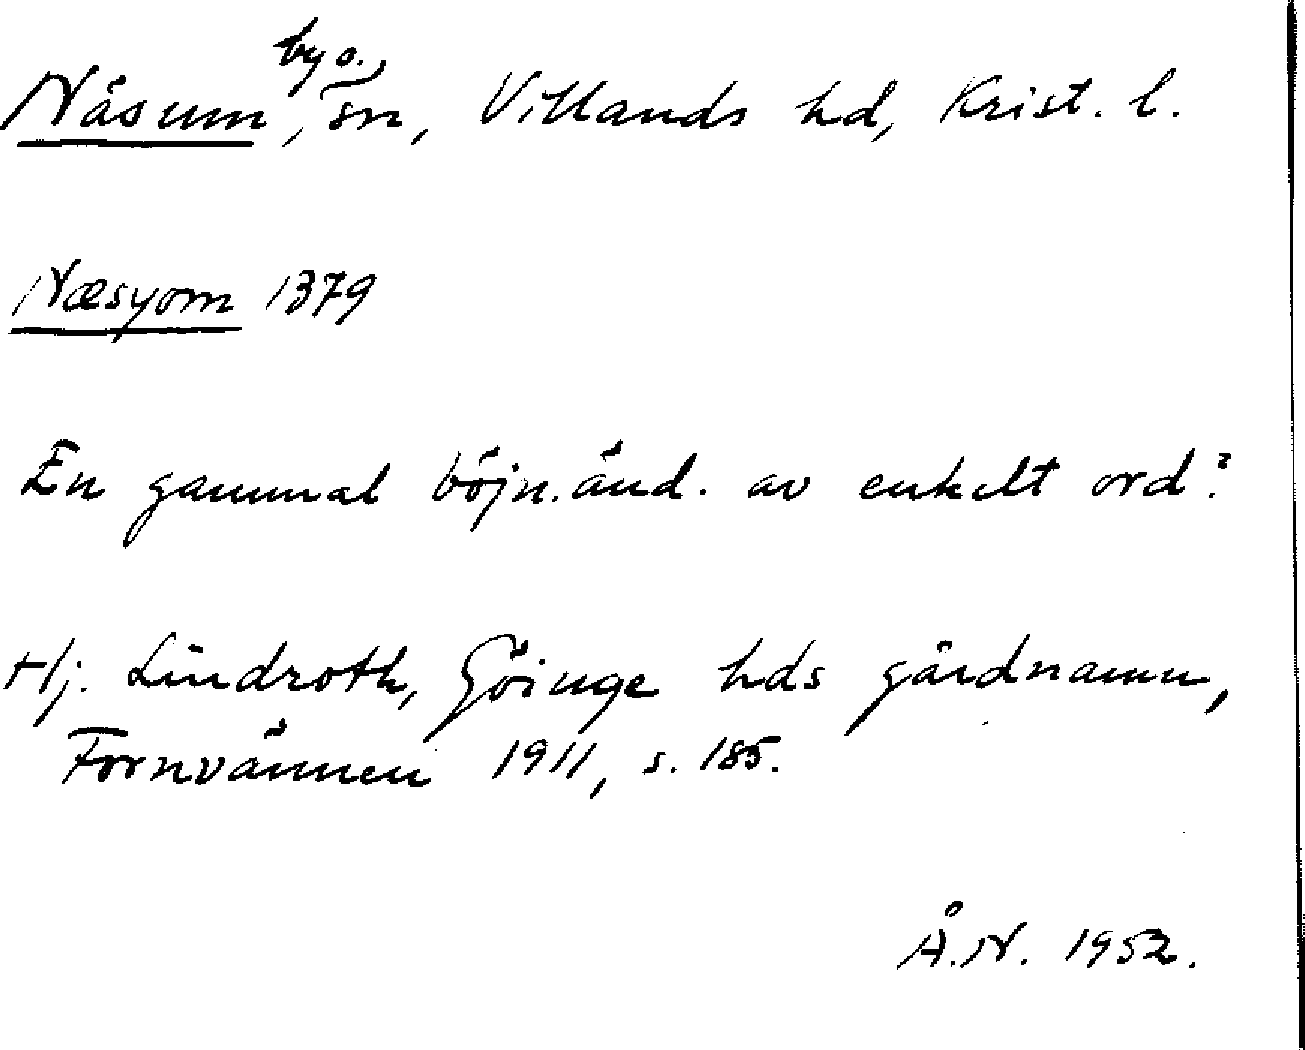 Näsum, by o. sn, Villands hd, Krist. l.
Næsyom 1379
En gammal böjn.änd. av enkelt ord?
Hj. Lindroth, Göinge hds gårdnamn,
Fornvännen 1911, s. 185.
Å.N. 1952.